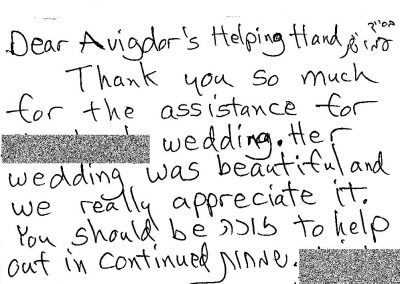 בס״ד
Dear Avigdor's Helping Hand
Thank you so much
for the assistance for
wedding. Her
wedding was beautiful and
we really appreciate it.
You should be זוכה to help
out in continued שמחות.